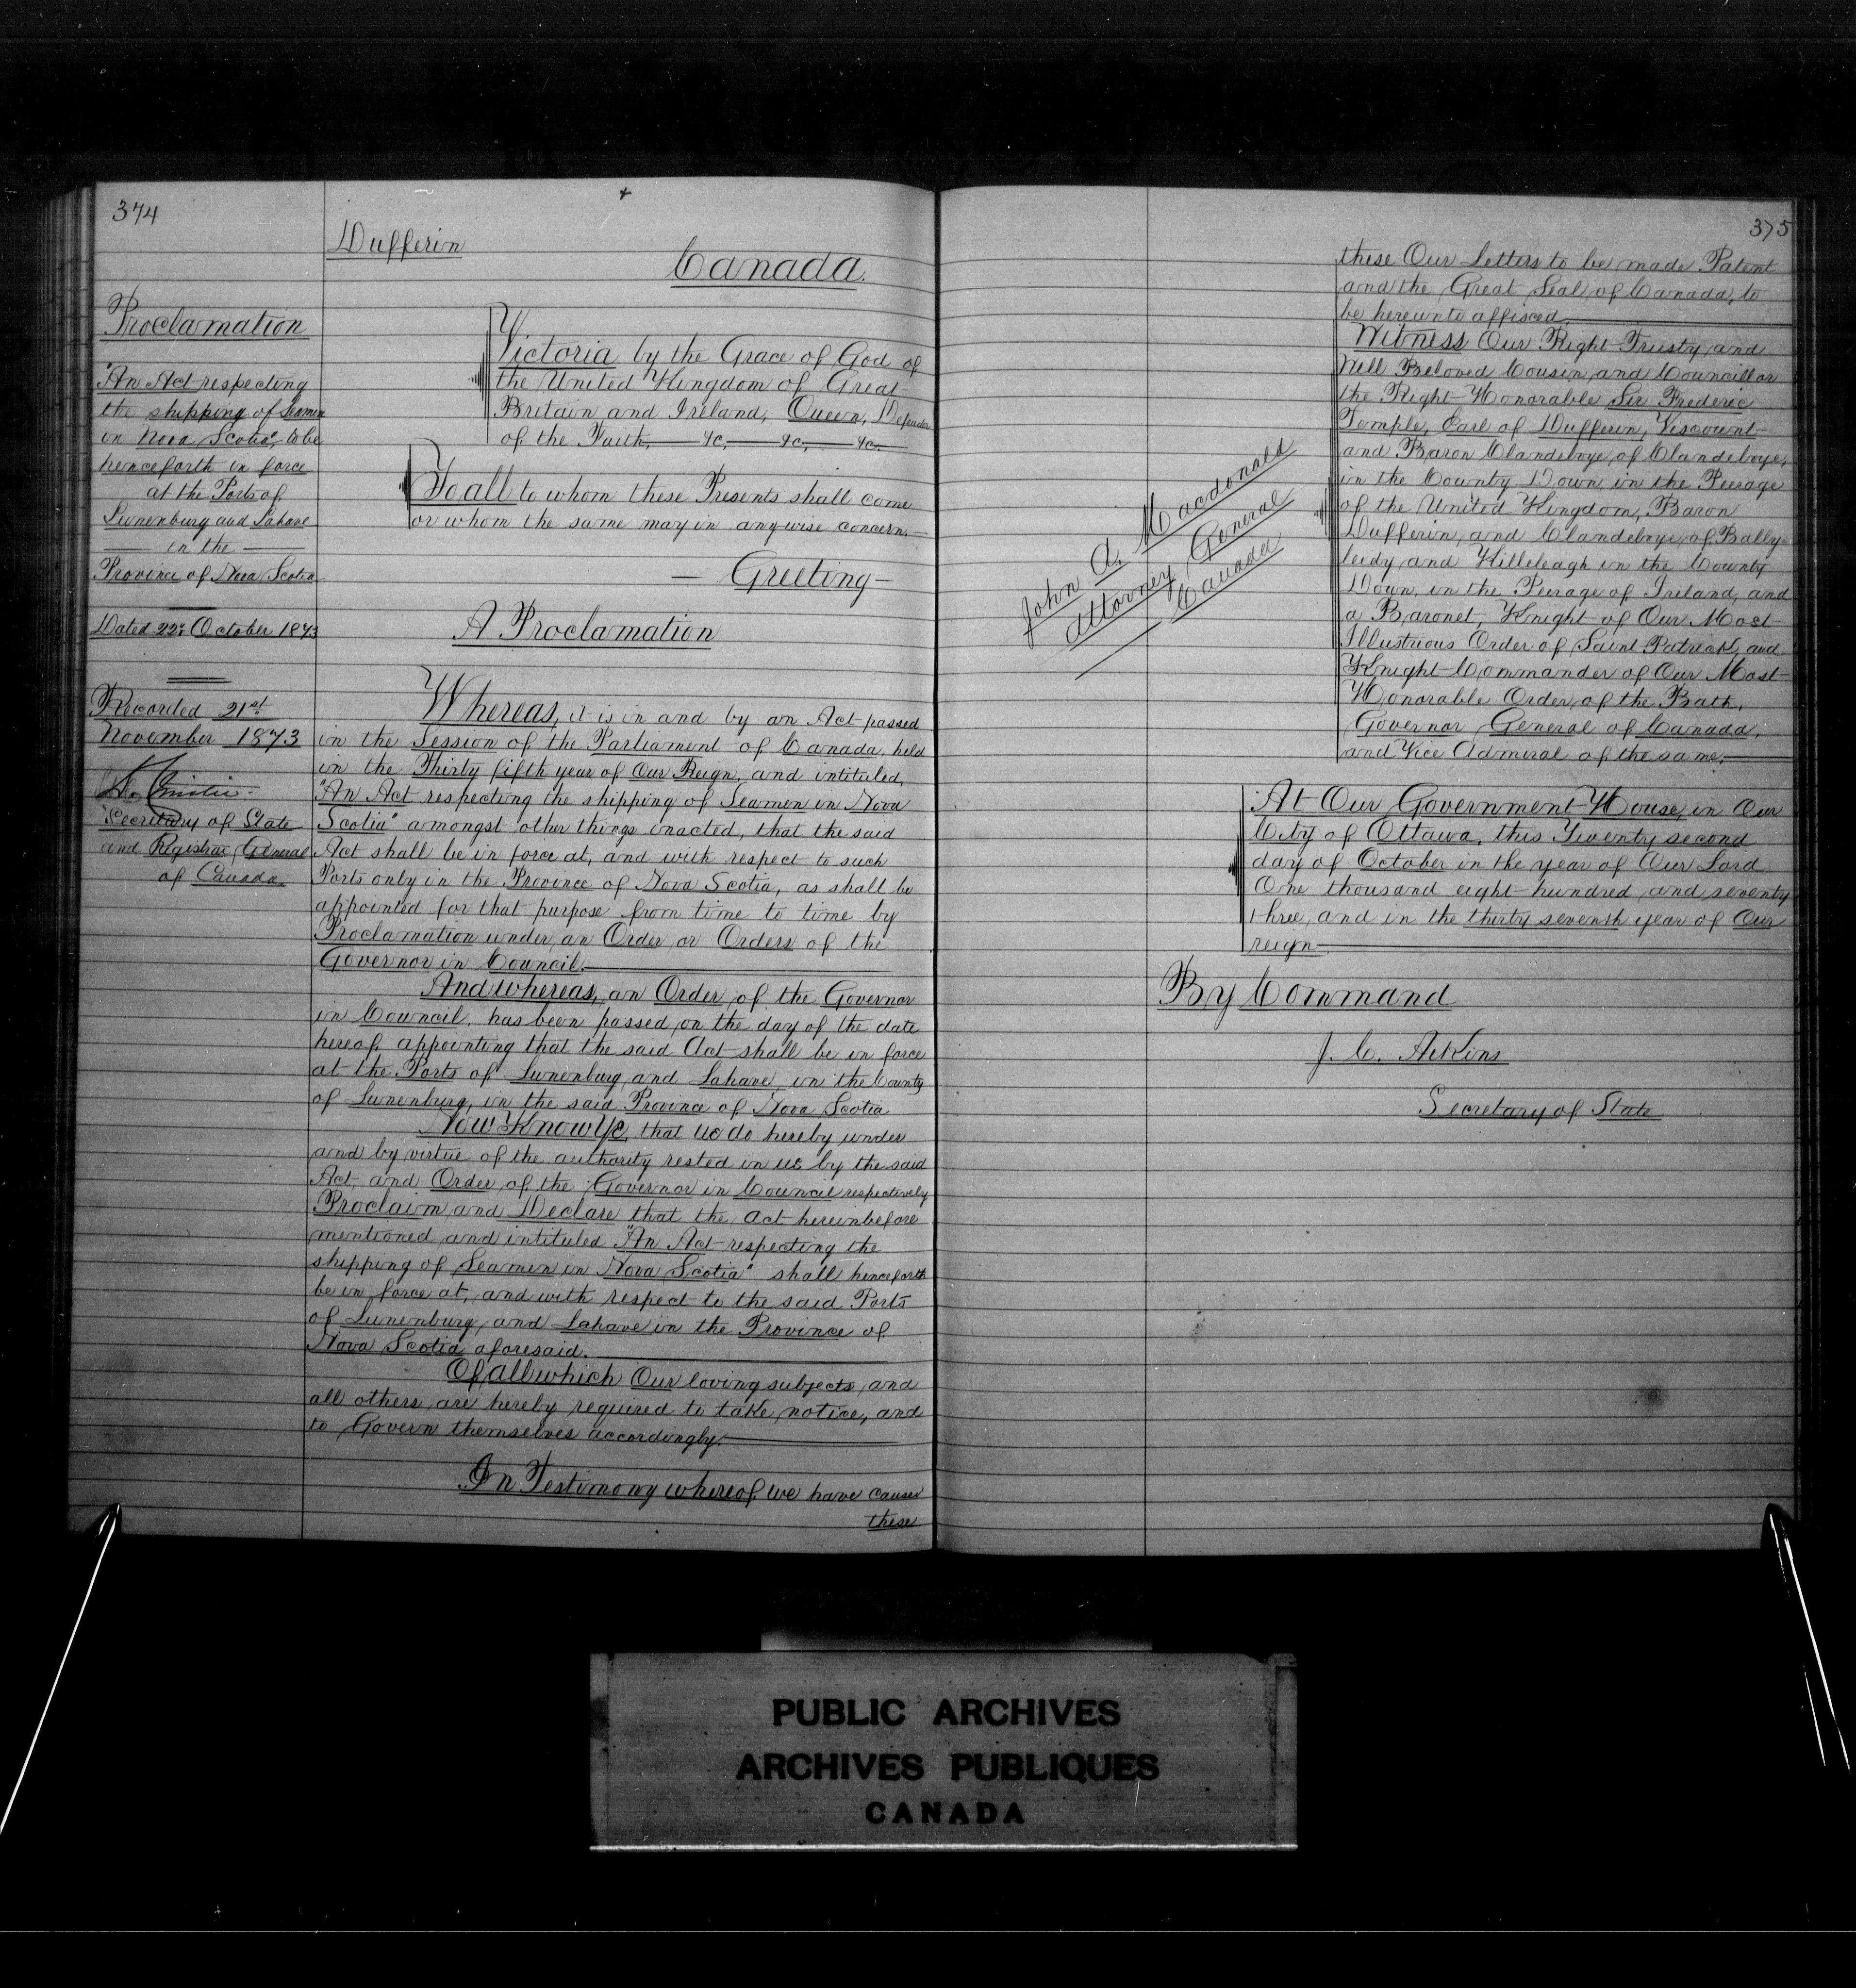 374
Dufferin
Canada.
Proclamation
"An Act respecting
the shipping of Seamen
in Nova Scotia", to be
henceforth in force
at the Ports of
Lunenburg and Lahave
in the
Province of Nova Scotia
Dated 22d October 1873
Recorded 21st
November 1873
Secretary of State
and Registrar General
of Canada.
Victoria by the Grace of God of
the United Kingdom of Great
Britain and Ireland, Queen, Defender
of the Faith, &c, &c, &c.
To all to whom these Presents shall come
or whom the same may in anywise concern.
Greeting
A Proclamation
Whereas, it is in and by an Act passed
in the Session of the Parliament of Canada, held
in the Thirty fifth year of Our Reign, and intituled,
"An Act respecting the shipping of Seamen in Nova
Scotia" amongst other things enacted, that the said
Act shall be in force at, and with respect to such
Ports only in the Province of Nova Scotia, as shall be
appointed for that purpose from time to time by
Proclamation under an Order or Orders of the
Governor in Council.
And whereas, an Order of the Governor
in Council, has been passed, on the day of the date
hereof, appointing that the said Act shall be in force
at the Ports of Lunenburg and Lahave, in the County
of Lunenburg, in the said Province of Nova Scotia
Now Know Ye, that we do hereby under
and by virtue of the authority rested in us by the said
Act and Order of the Governor in Council respectively
Proclaim and Declare that the Act hereinbefore
mentioned and intituled "An Act respecting the
shipping of Seamen in Nova Scotia" shall henceforth
be in force at, and with respect to the said Ports
of Lunenburg and Lahave in the Province of
Nova Scotia aforesaid.
Of all which Our loving subjects, and
all others are hereby required to take notice, and
to Govern themselves accordingly.
In Testimony whereof, we have caused
these
375
these Our Letters to be made Patent
and the Great Seal of Canada, to
be hereunto affixed.
Witness Our Right Trusty and
Well Beloved Cousin and Councillor
the Right Honorable Sir Frederic
Temple, Earl of Dufferin, Viscount
and Baron Clandeboye, of Clandeboye,
in the County Down, in the Peerage
of the United Kingdom, Baron
Dufferin, and Clandeboye, of Bally-
leidy and Killeleagh in the County
Down, in the Peerage of Ireland, and
a Baronet, Knight of Our Most
Illustrious Order of Saint Patrick, and
Knight Commander of Our Most
Honorable Order of the Bath,
Governor General of Canada,
and Vice Admiral of the same.
John A. Macdonald
Attorney General
Canada
At Our Government House, in Our
City of Ottawa, this Twenty second
day of October in the year of Our Lord
One thousand eight hundred and seventy
three, and in the thirty seventh year of Our
reign
By Command
J. C. Aikins
Secretary of State
PUBLIC ARCHIVES
ARCHIVES PUBLIQUES
CANADA